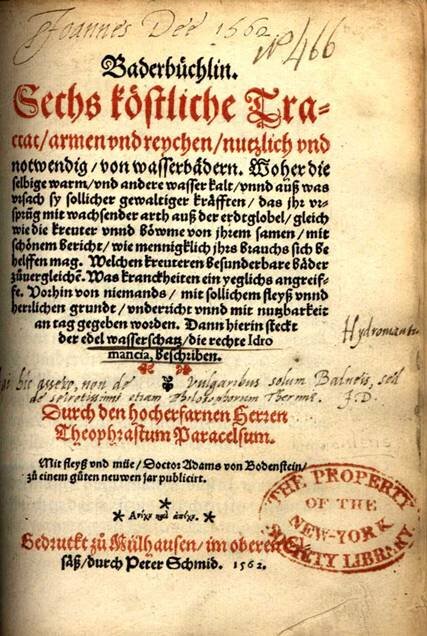 Joannes Dee 1562
No 466
Baderbüchlin.
Sechs köstliche Tra-
ctat/armen vnd reychen/nutzlich vnd
notwendig/von wasserbädern. Woher die
selbige warm/vnd andere wasser kalt/vnnd auß was
vrsach sy sollicher gewaltiger kräfften/das jhr vr-
sprüg mit wachsender arth auß der erdtglobel/gleich
wie die kreuter vnnd böwme von jhrem samen/mit
schönem bericht/wie mennigklich jhrs brauchs sich be
helffen mag. Welchen kreuteren besunderbare bäder
zůuergleichē. Was kranckheiten ein yeglichs angreif-
fe. Vorhin von niemands/mit sollichem fleyß vnnd
herrlichen grundt/vnderricht vnnd mit nutzbarkeit
an tag gegeben worden. Dann hierin steckt
der edel wasserschatz/die rechte Idro
mancia, beschriben.
Hydromanti
hic quæro, non de vulgaribus solum Balneis, sed
de secretissimi etiam Philosophorum Thermis. J.D.
Durch den hocherfarnen Herren
Theophrastum Paracelsum.
Mit fleyß vnd müe/Doctor Adams von Bodenstein/
zů einem gůten neuwen jar publicirt.
* Ανέχχ καὶ ἀπέχχ. *
Gedruckt zů Mülhausen/im oberen El
säß/durch Peter Schmid. 1562.
THE PROPERTY
OF THE
NEW-YORK
SOCIETY LIBRARY.